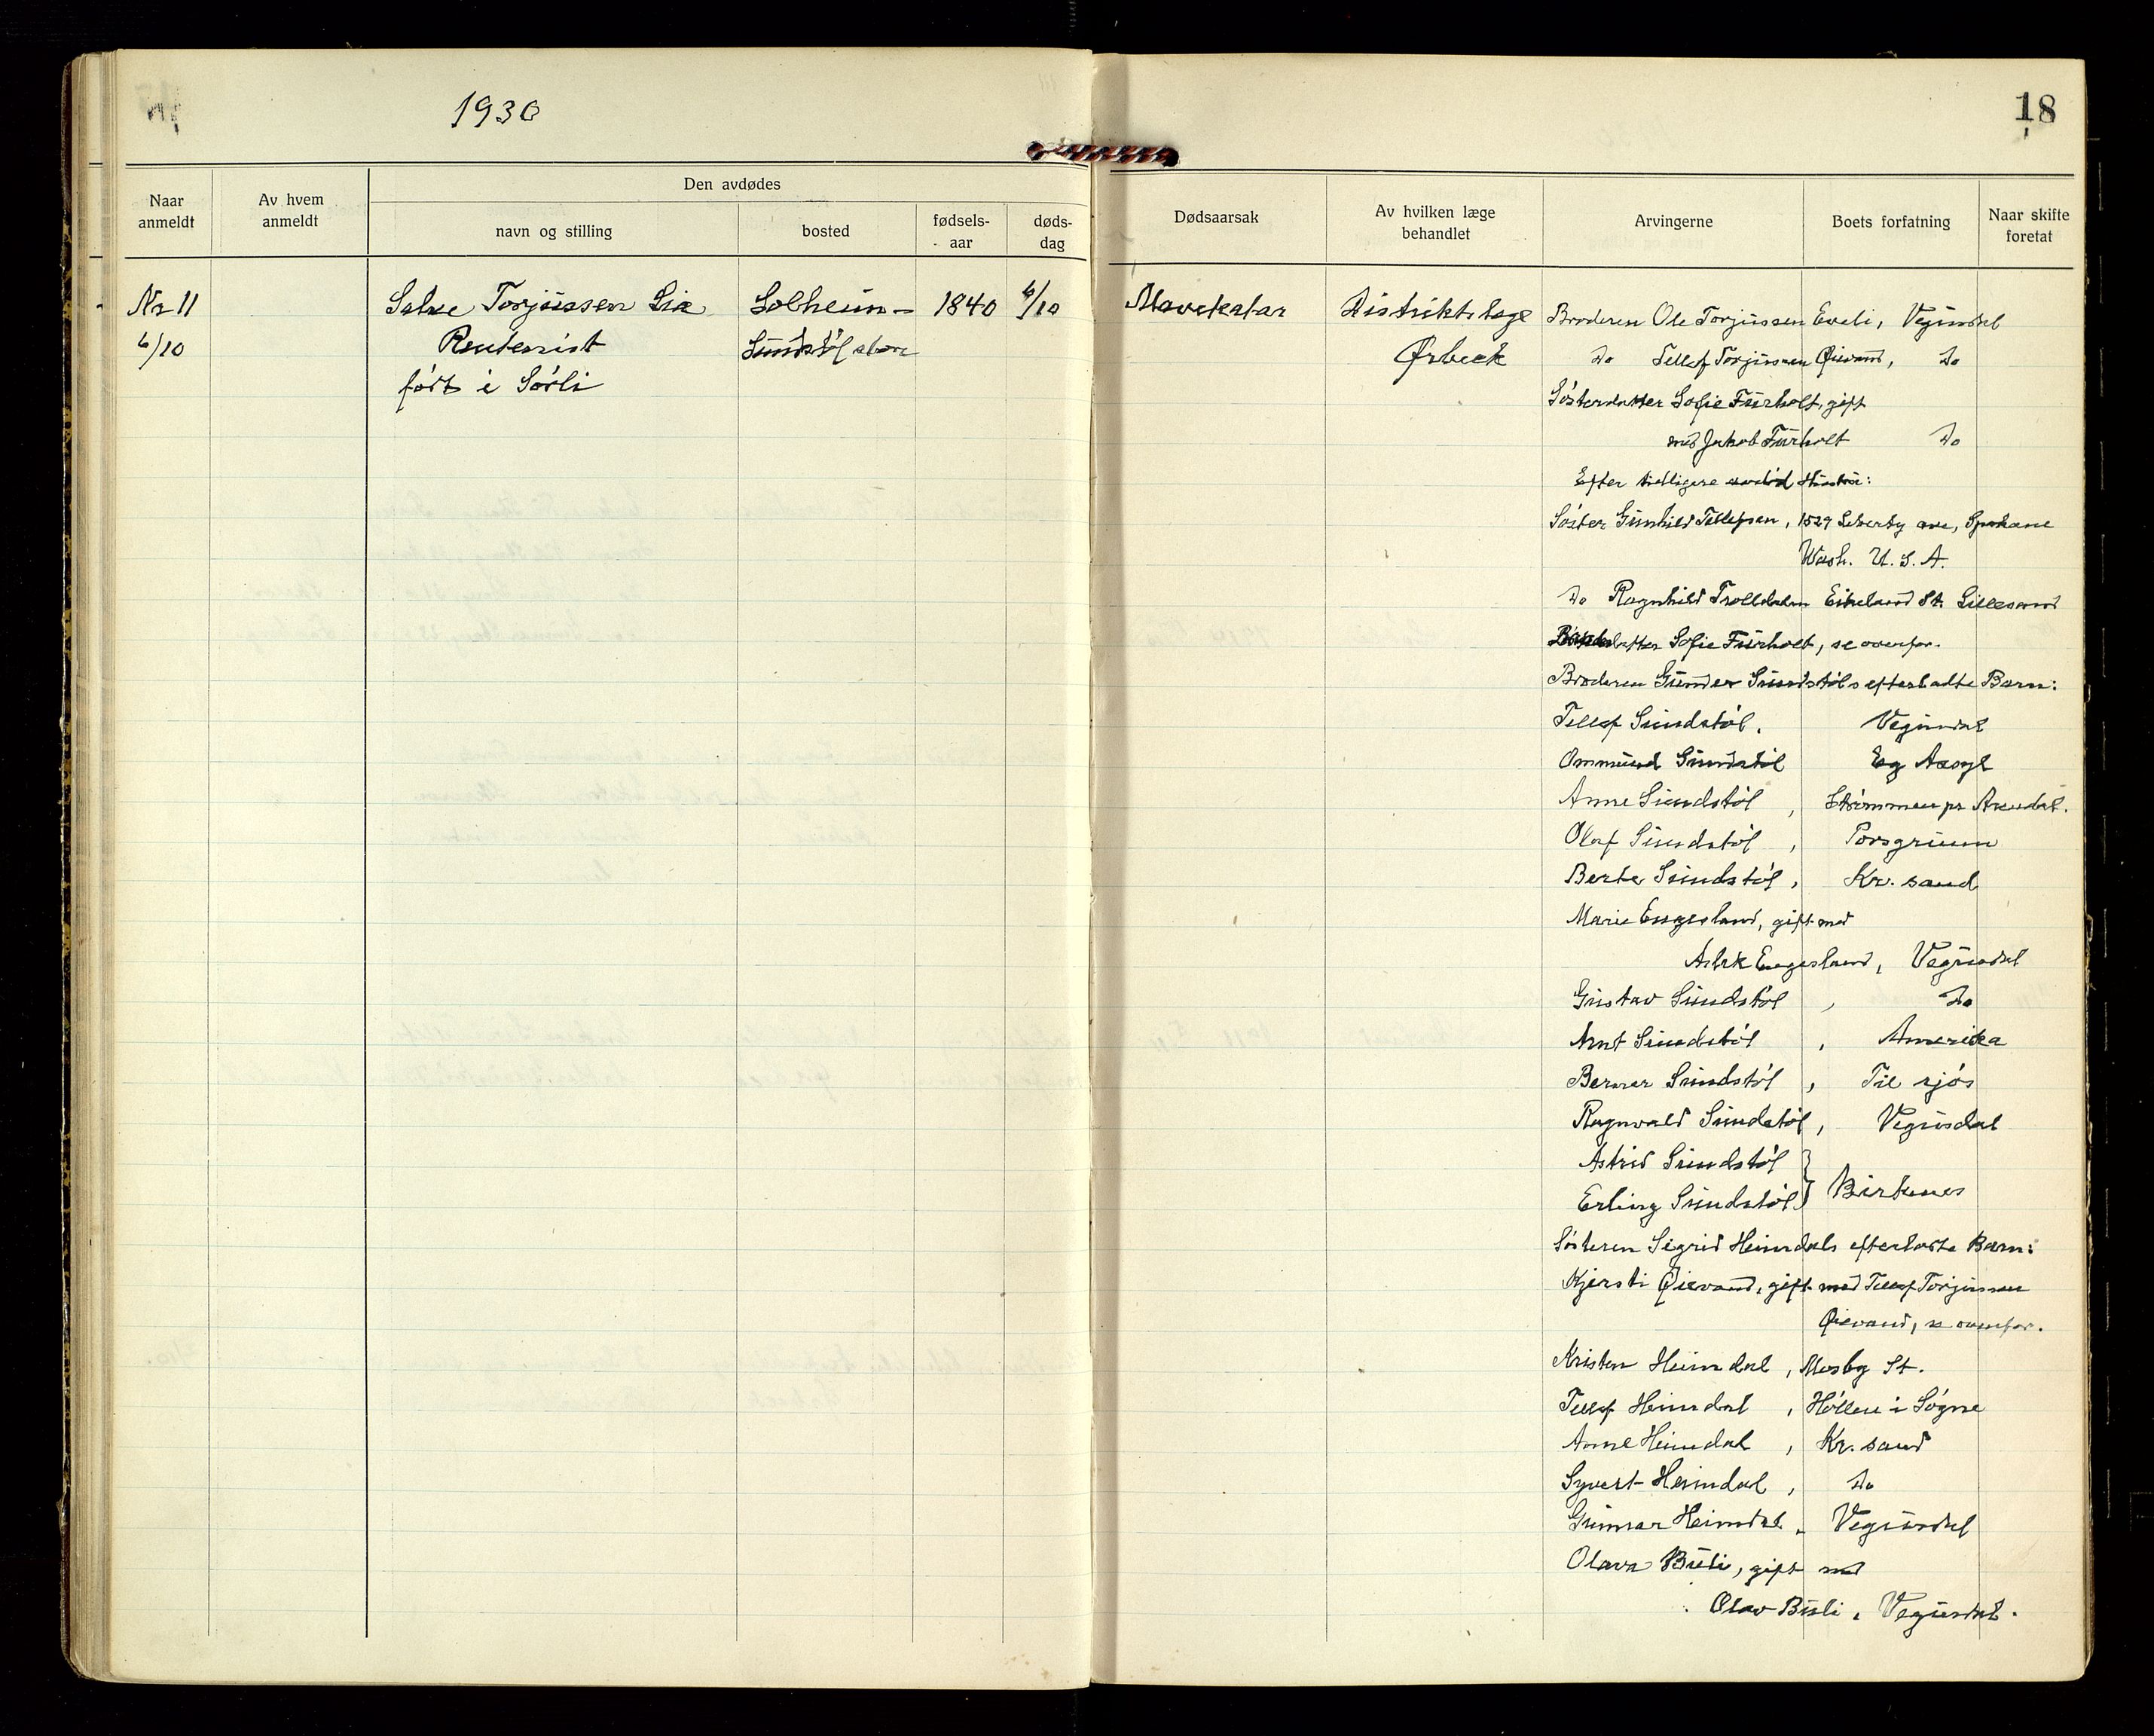 1930
18
Naar anmeldt
Av hvem anmeldt
Den avdødes
navn og stilling
bosted
fødsels-aar
døds-dag
Dødsaarsak
Av hvilken læge behandlet
Arvingerne
Boets forfatning
Naar skifte foretat
Nr 11
6/10
Salve Torjussen Lia
Rentenist
født i Sørli
Solheim -
Sundstøl
1840
6/10
Mavekatar
Distriktslæge
Ørbeck
Broderen Ole Torjussen Eveli, Vegusdal
Do Tellef Torjussen Øievand, Do
Søsterdatter Sofie Furholt, gift
med Jakob Furholt Do
Efter tidligere avdød Hustru:
Søster Gunhild Tellefsen, 1529 Liberty ave, Spokane
Wash. U. S. A.
Do Ragnhild Trolldalen Eikeland St. Lillesand
datter Sofie Furholt, se ovenfor.
Broderen Gunder Sundstøls efterladte Barn:
Tellef Sundstøl, Vegusdal
Ommund Sundstøl Eg Asyl
Anne Sundstøl, Strømmen pr Arendal.
Olaf Sundstøl, Porsgrunn
Berte Sundstøl, Kr. sand
Marie Engesland, gift med
Aslak Engesland, Vegusdal
Gustav Sundstøl, Do
Arnt Sundstøl, Amerika
Berner Sundstøl, Til sjøs
Ragnvald Sundstøl, Vegusdal
Astrid Sundstøl }
Erling Sundstøl } Birkenes
Søsteren Sigrid Heimdals efterladte Barn:
Kjersti Øievand, gift med Tellef Torjussen
Øievand, se ovenfor.
Kristen Heimdal, Mosby St.
Tellef Heimdal, Høllen i Søgne
Anne Heimdal, Kr. sand
Syvert Heimdal, Do
Gunnar Heimdal, Vegusdal
Olava Busli, gift med
Olav Busli, Vegusdal.